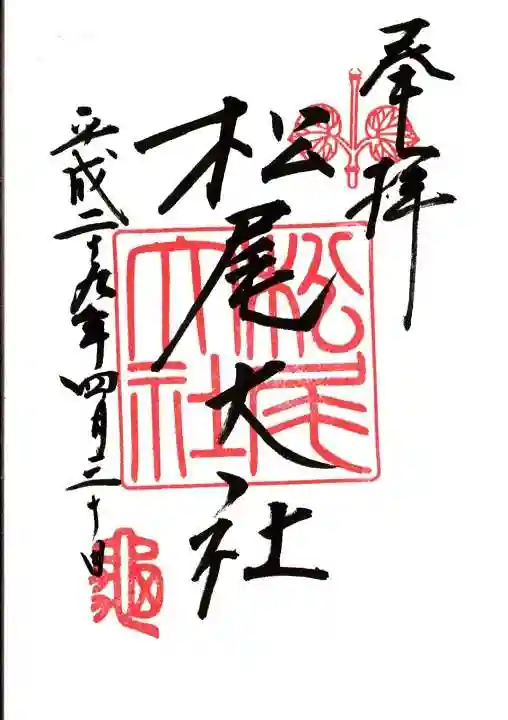 奉拝
松尾大社
松尾大社
平成二十九年四月三十日